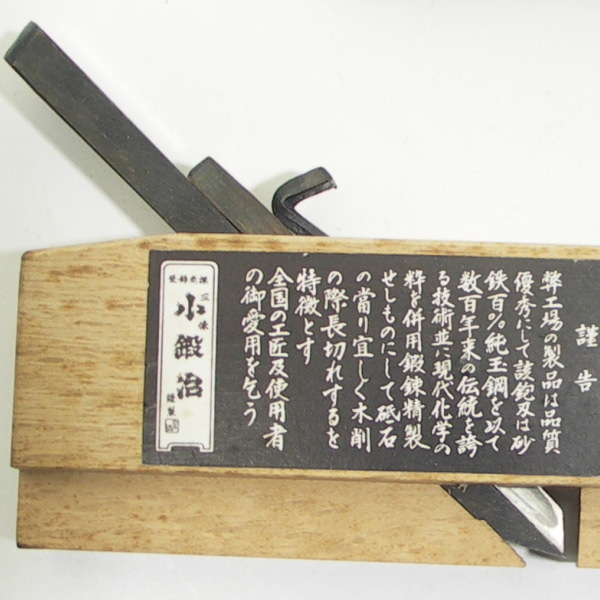 謹告
弊工場の製品は品質
優秀にして該鉋刃は砂
鉄百%純玉鋼を以て
数百年来の伝統を誇
る技術並に現代化学の
粋を併用鍛錬精製
せしものにして砥石
の當り宜しく木削
の際長切れするを
特徴とす
全国の工匠及使用者
の御愛用を乞う
三條
小鍛冶
謹製